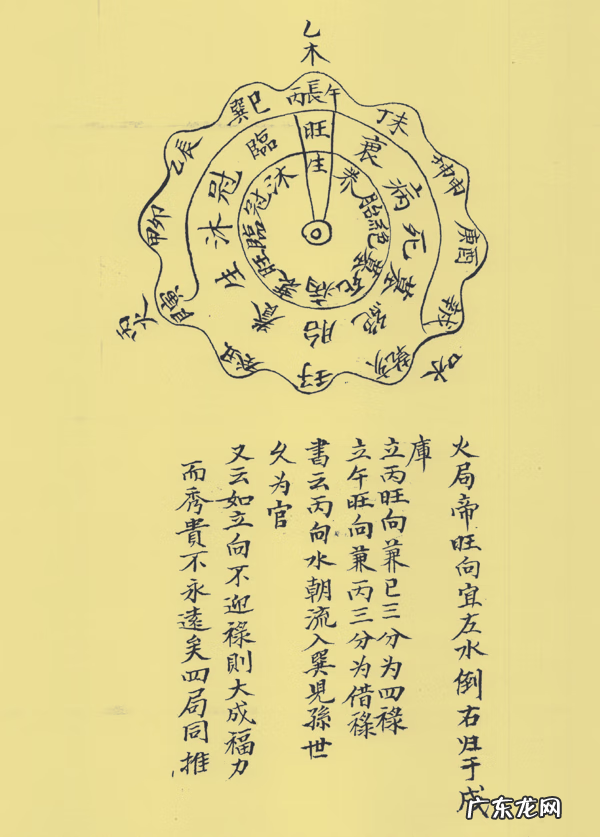 乙木
丙長午
丁未
坤申
庚酉
辛戌
乾亥
壬子
癸丑
艮寅
甲卯
乙辰
巽巳
旺
衰
病
死
墓
绝
胎
養
生
沐
冠
臨
生
养
胎
絕
墓
死
病
衰
旺
臨
冠
沐
火局帝旺向宜左水倒右归于戍
庫
立丙旺向兼巳三分为四禄
立午旺向兼丙三分为借禄
書云丙向水朝流入巽児孫世
久为官
又云如立向不迎禄則大成福力
而秀貴不永遠矣四局同推
广东龙网